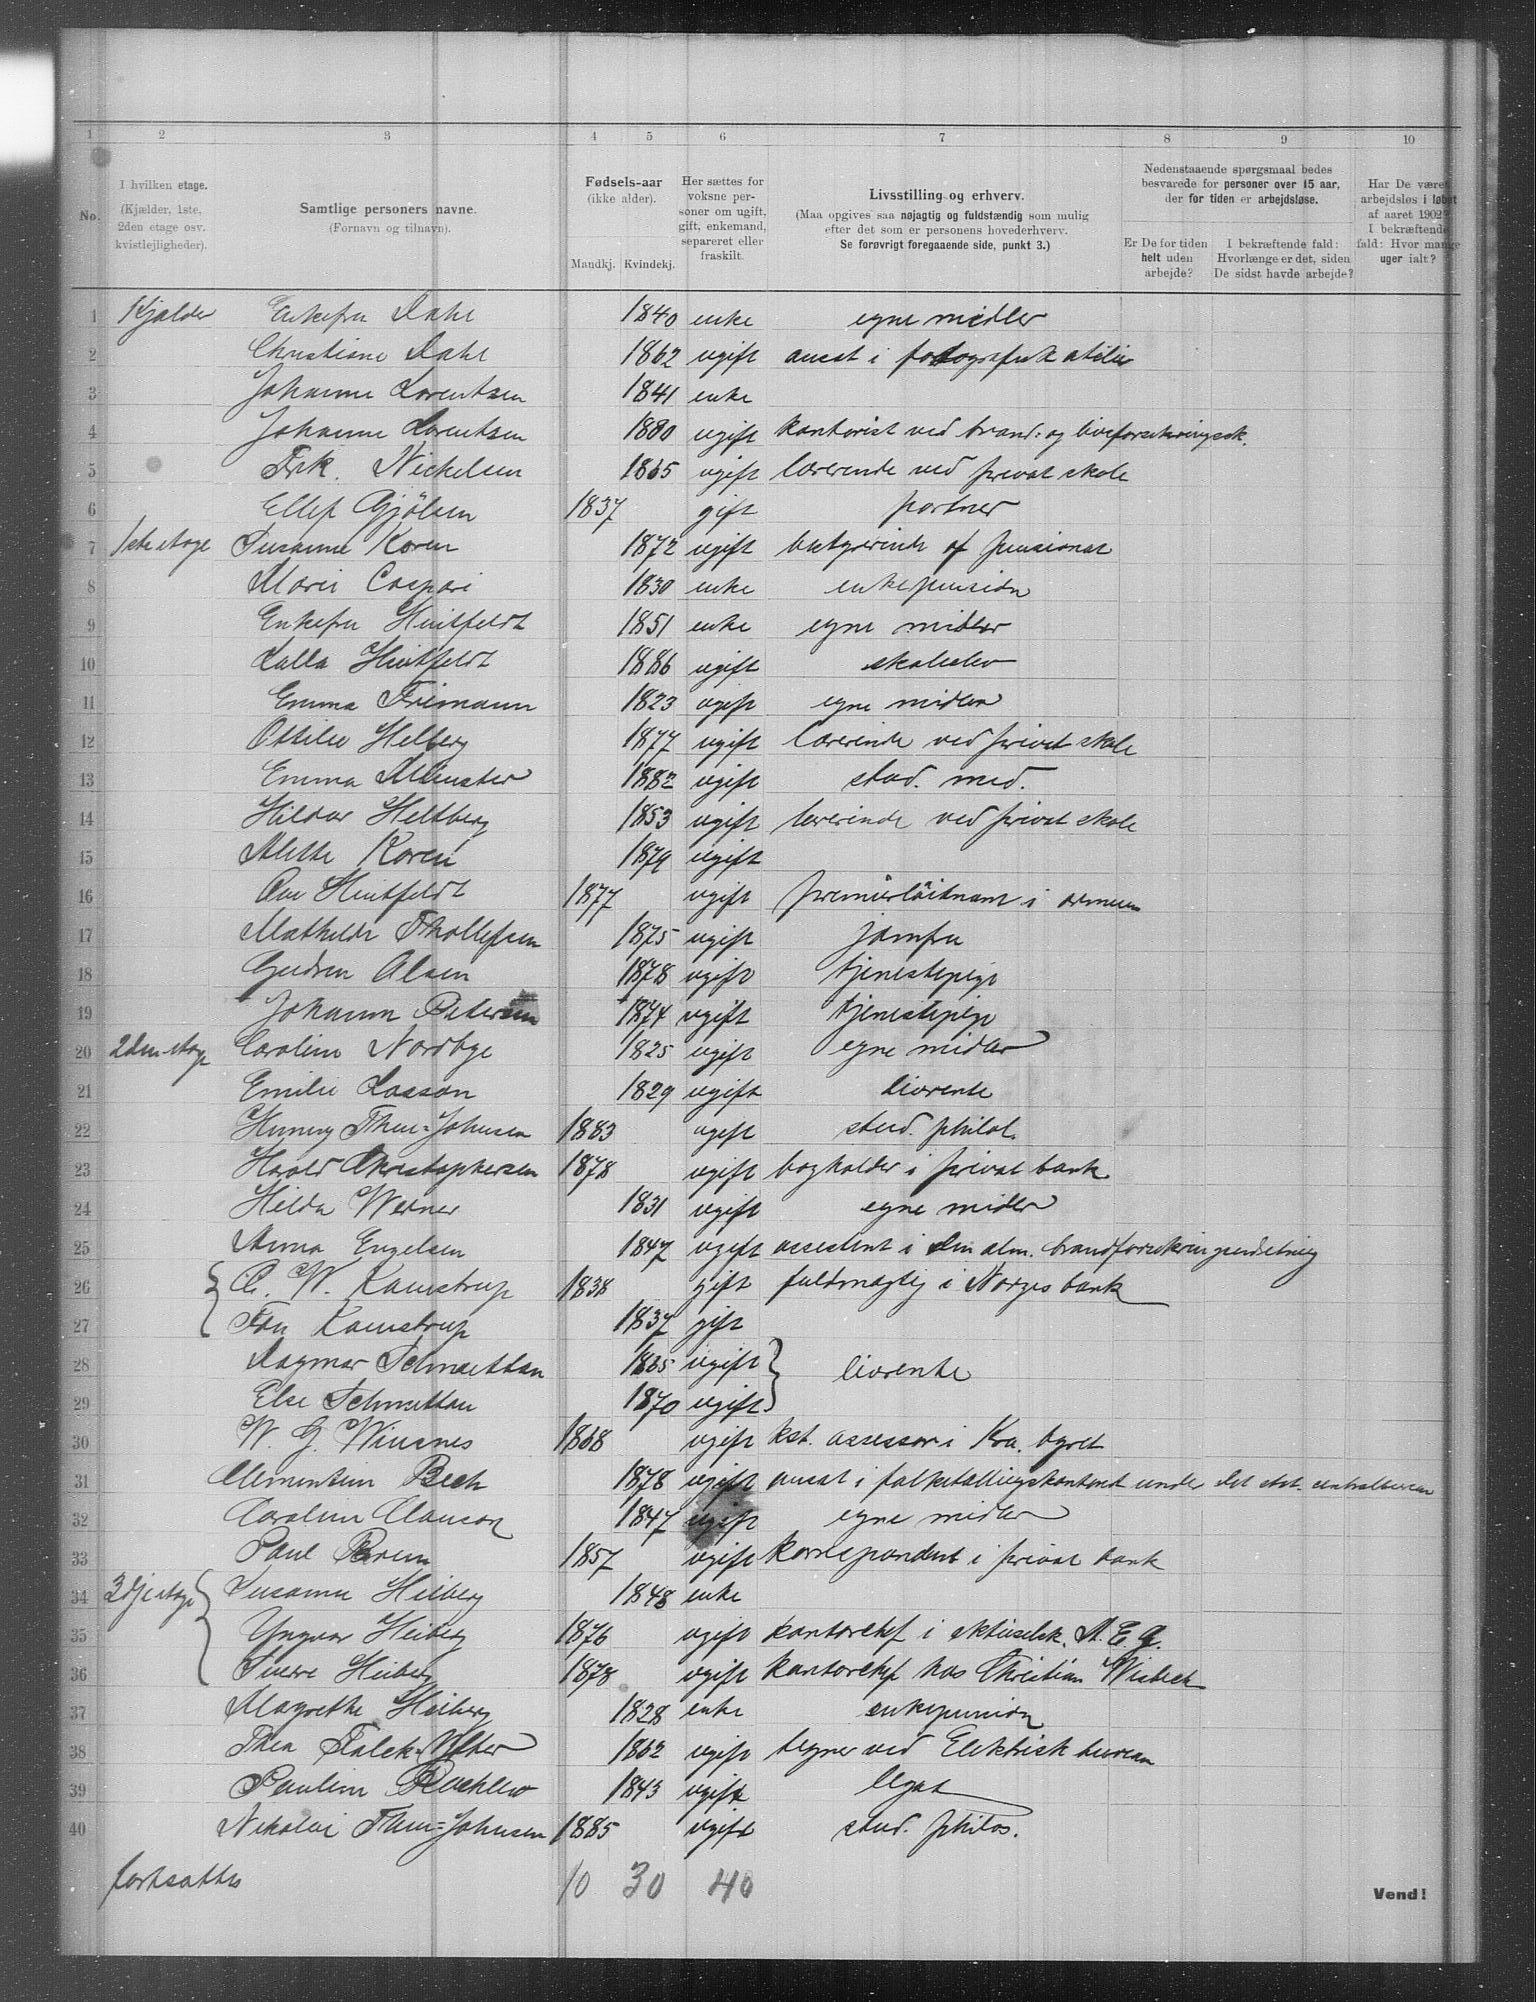 1 2 3 4 5 6 7 8 9 10
No.
I hvilken etage.
(Kjælder, 1ste,
2den etage osv.
kvistlejligheder).
Samtlige personers navne.
(Fornavn og tilnavn).
Fødsels-aar
(ikke alder).
Mandkj. Kvindekj.
Her sættes for
voksne per-
soner om ugift,
gift, enkemand,
separeret eller
fraskilt.
Livsstilling og erhverv.
(Maa opgives saa nøjagtig og fuldstændig som mulig
efter det som er personens hovederhverv.
Se forøvrigt foregaaende side, punkt 3.)
Nedenstaaende spørgsmaal bedes
besvarede for personer over 15 aar,
der for tiden er arbejdsløse.
Er De for tiden
helt uden
arbejde?
I bekræftende fald:
Hvorlænge er det, siden
De sidst havde arbejde?
Har De været
arbejdsløs i løbet
af aaret 1902?
I bekræftende
fald: Hvor mange
uger ialt?
1 Kjælder Enkefru Dahl 1840 enke egne midler
2 Christiane Dahl 1862 ugift ansat i fotografisk atelier
3 Johanne Lorentsen 1841 enke
4 Johanne Lorentsen 1880 ugift kontorist ved brand- og livsforsikringssk.
5 Frk. Nickelsen 1865 ugift lærerinde ved privat skole
6 Ellef Gjölsen 1837 gift portner
7 1ste etage Susanne Koren 1872 ugift bestyrerinde af pensionat
8 Marie Caspari 1830 enke enkepension
9 Enkefru Huitfeldt 1851 enke egne midler
10 Lalla Huitfeldt 1886 ugift skoleelev
11 Emma Friemann 1823 ugift egne midler
12 Ottilie Helberg 1877 ugift lærerinde ved privat skole
13 Emma Münster 1882 ugift stud. med.
14 Hildur Heltberg 1853 ugift lærerinde ved privat skole
15 Mette Koren 1879 ugift
16 Huitfeldt 1877 ugift premierløitnant i armeen
17 Mathilde Thollefsen 1875 ugift jomfru
18 Gudrun Olsen 1878 ugift tjenestepige
19 Johanne Petersen 1874 ugift tjenestepige
20 2den etage Caroline Nordbye 1825 ugift egne midler
21 Emilie Lasson 1829 ugift livrente
22 Henning Thue-Johnsen 1883 ugift stud. philol.
23 Harald Christophersen 1878 ugift bogholder i privat bank
24 Hilda Werner 1831 ugift egne midler
25 Anna Engelsen 1847 ugift assistent i den alm. brandforsikringsindretning
26 C. W. Kamstrup 1838 gift fuldmægtig i Norges bank
27 Fru Kamstrup 1837 gift
28 Dagmar Schmettau 1865 ugift } livrente
29 Else Schmettau 1870 ugift
30 W. G. Winsnes 1868 ugift kst. assessor i Kra. byret
31 Clementine Bech 1878 ugift ansat i folketællingskontoret under det stat. centralbureau
32 Caroline Clauson 1847 ugift egne midler
33 Paul 1857 ugift korrespondent i privat bank
34 3dje etage Susanne Heiberg 1848 enke
35 Yngvar Heiberg 1876 ugift kontorchef i aktieselsk. A. E. G.
36 Sverre Heiberg 1878 ugift kontorchef hos Christian Wisbech
37 Magrethe Heiberg 1828 enke enkepension
38 Thea Falck-Ytter 1862 ugift tegner ved Elektrisk bureau
39 Pauline 1843 ugift legat
40 Nikolai Thue-Johnsen 1885 ugift stud. philos.
fortsættes 10 30 40
Vend!